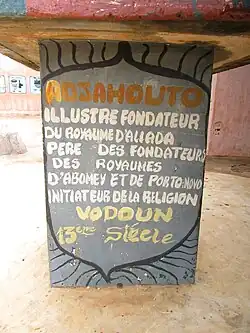 ADJAHOUTO
ILLUSTRE FONDATEUR
DU ROYAUME D'ALLADA
PERE DES FONDATEURS
DES ROYAUMES
D'ABOMEY ET DE PORTO-NOVO
INITIATEUR DE LA RELIGION
VODOUN
13ème Siècle